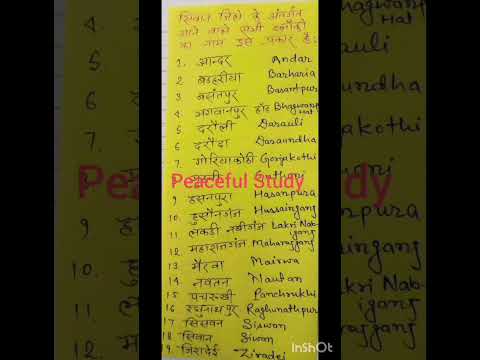 सिवान जिले के अंतर्गत
आने वाले सभी प्रखंडों
का नाम इस प्रकार है:
1. आन्दर Andar
2 बड़हरीया Barharia
3 बसंतपुर Basantpur
4 भगवानपुर हाॅट Bhagwanpur Hat
5 दरौली Darauli
6 दरौंदा Daraundha
7. गोरियाकोठी Gorjakothi
Peaceful Study
9 हसनपुरा Hasanpura
10. हुसैनगंज Hussainganj
11 लकड़ी नबीगंज Lakri Nabiganj
12. महाराजगंज Maharajganj
13 मैरवा Mairwa
14. नवतन Nautan
15 पचरुखी Panchrukhi
16 रघुनाथपुर Raghunathpur
17 सिसवन Siswan
18 सिवान Siwan
9. जिरादेई Ziradei
InShOt